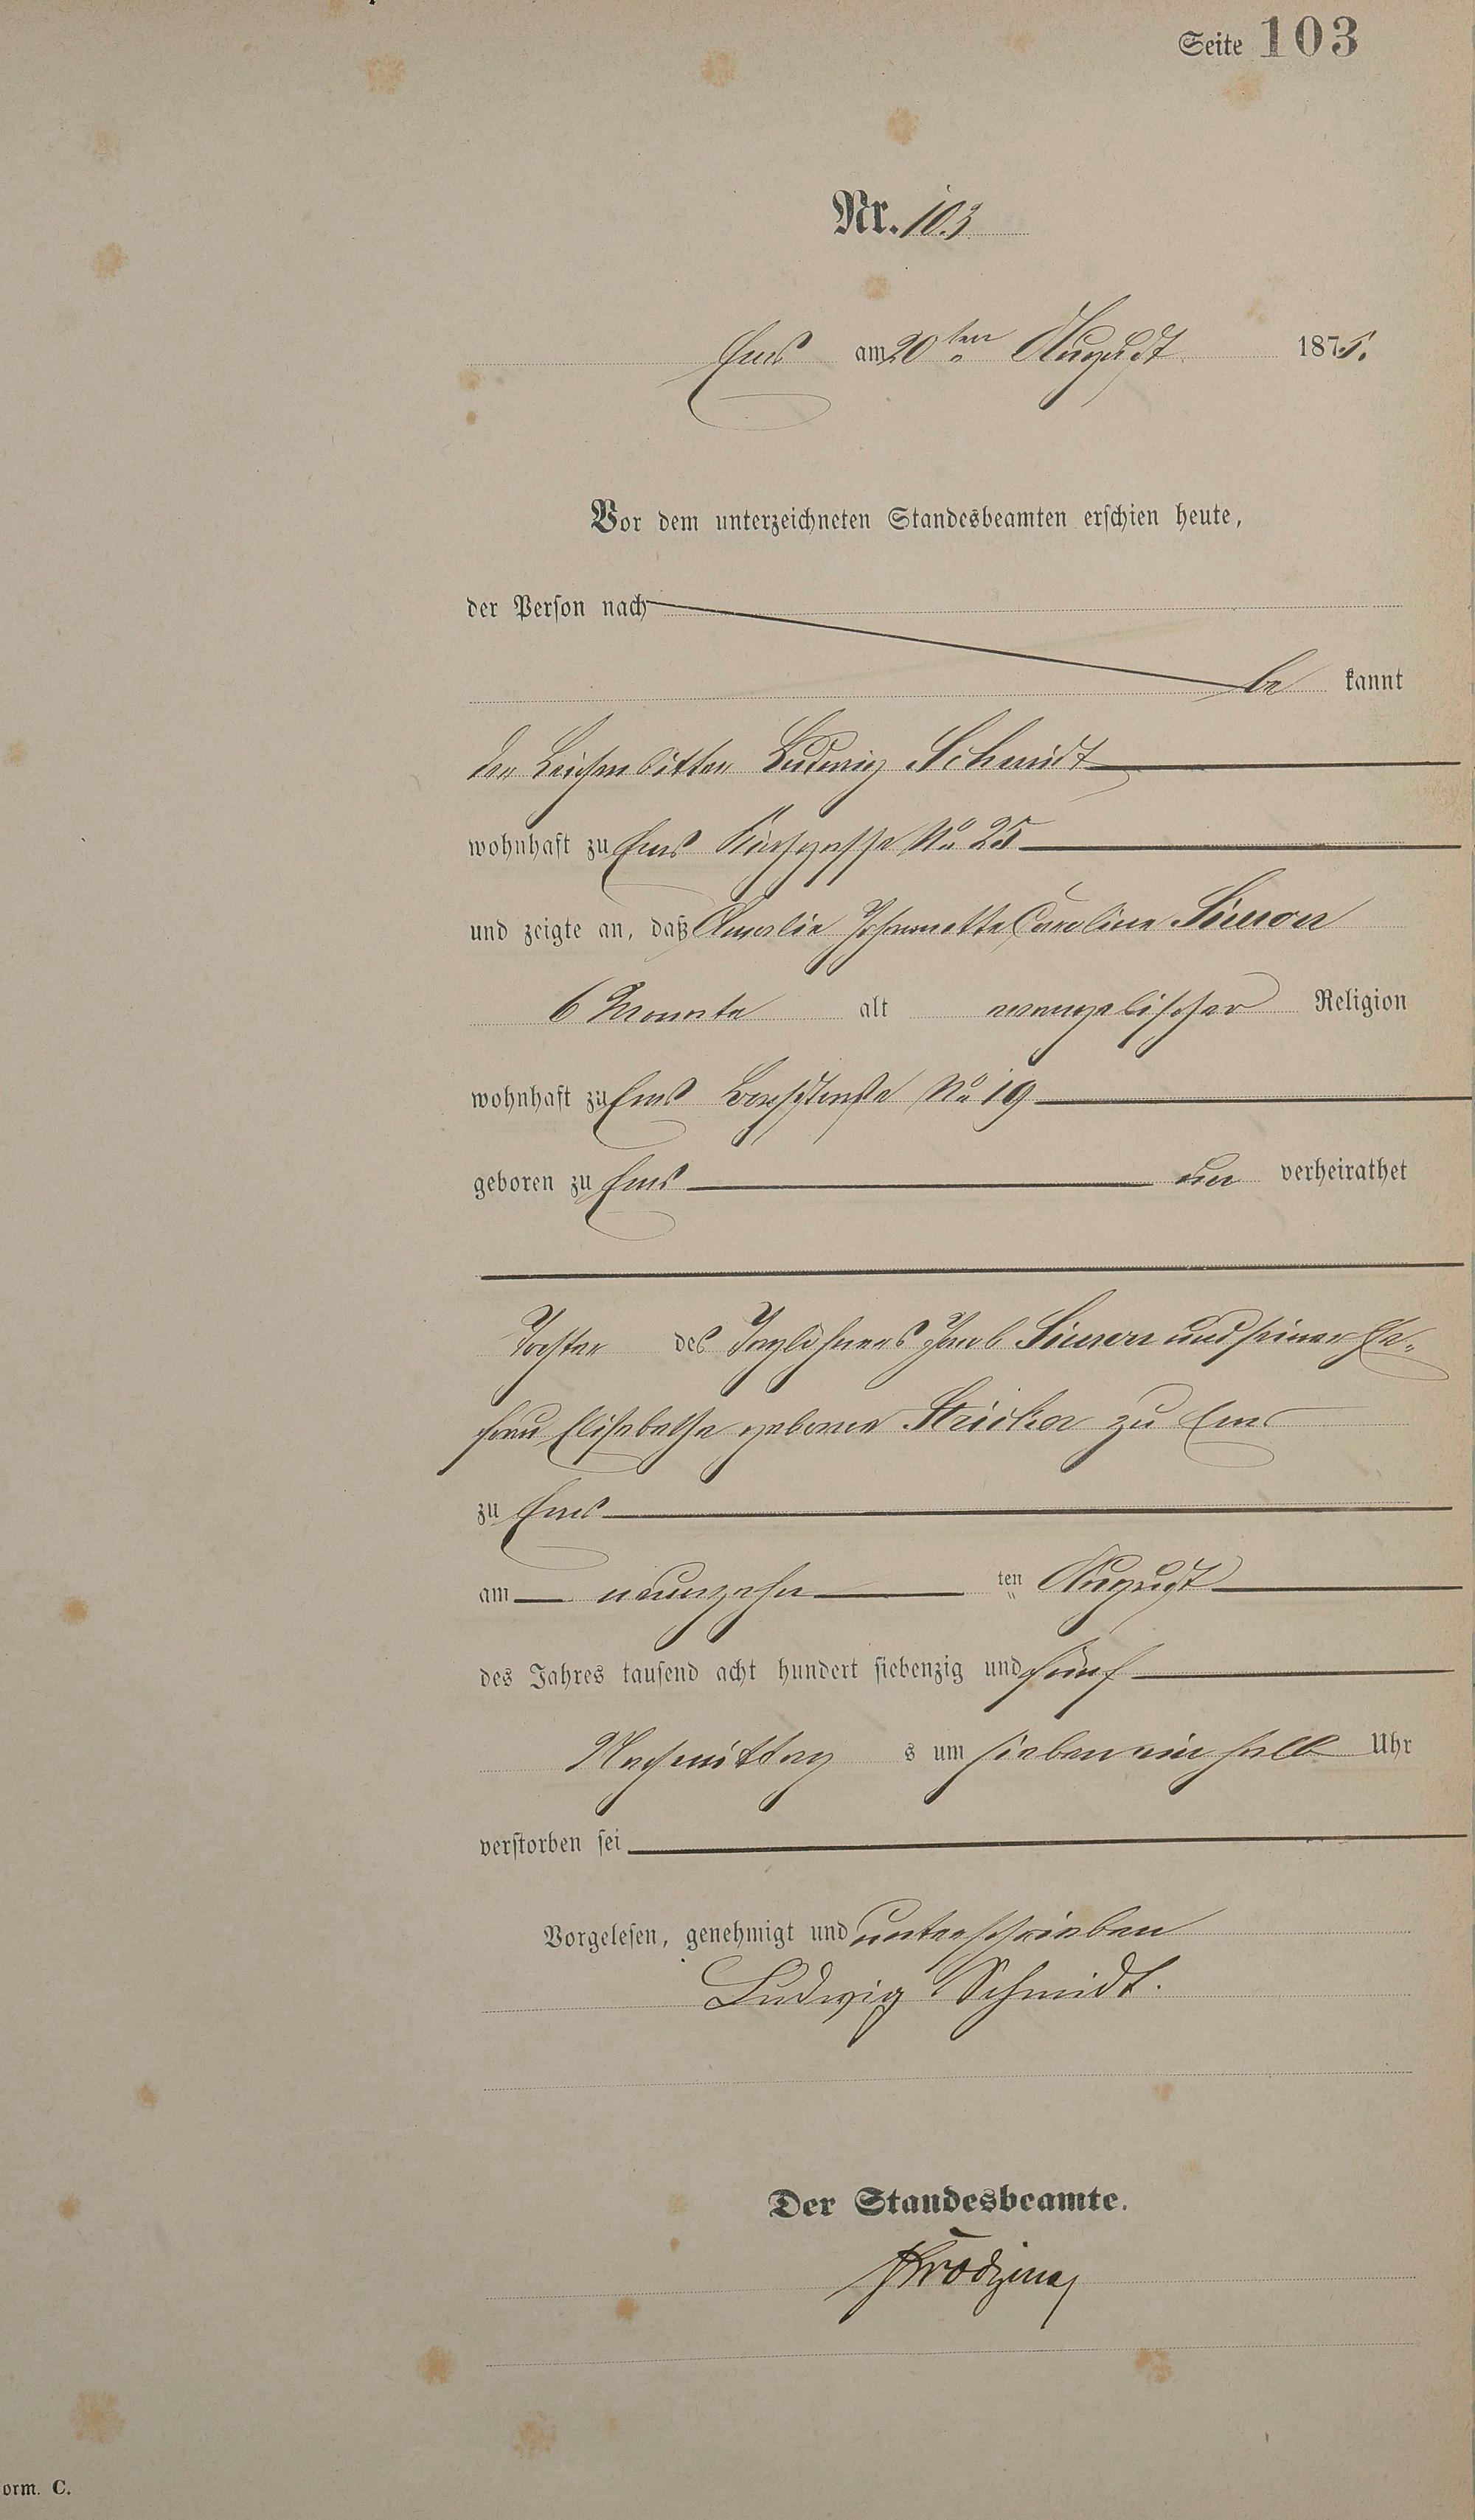 Seite 103
Nr. 103
Ems am 20ten August 1875.
Vor dem unterzeichneten Standesbeamten erschien heute,
der Person nach
be kannt
der Leichenbitter Ludwig Schmidt
wohnhaft zu Ems No 25
und zeigte an, daß Amalie Johannette Caroline Simon
6 Monate alt evangelischer Religion
wohnhaft zu Ems No 19
geboren zu Ems un verheirathet
Tochter des Taglöhners Jacob Simon und seiner Ehe-
frau Elisabethe geborene Stricker zu Ems
zu Ems
am neunzehn ten August
des Jahres tausend acht hundert siebenzig und fünf
Nachmittag s um sieben ein halb Uhr
verstorben sei
Vorgelesen, genehmigt und unterschrieben
Ludwig Schmidt.
Der Standesbeamte.
orm. C.